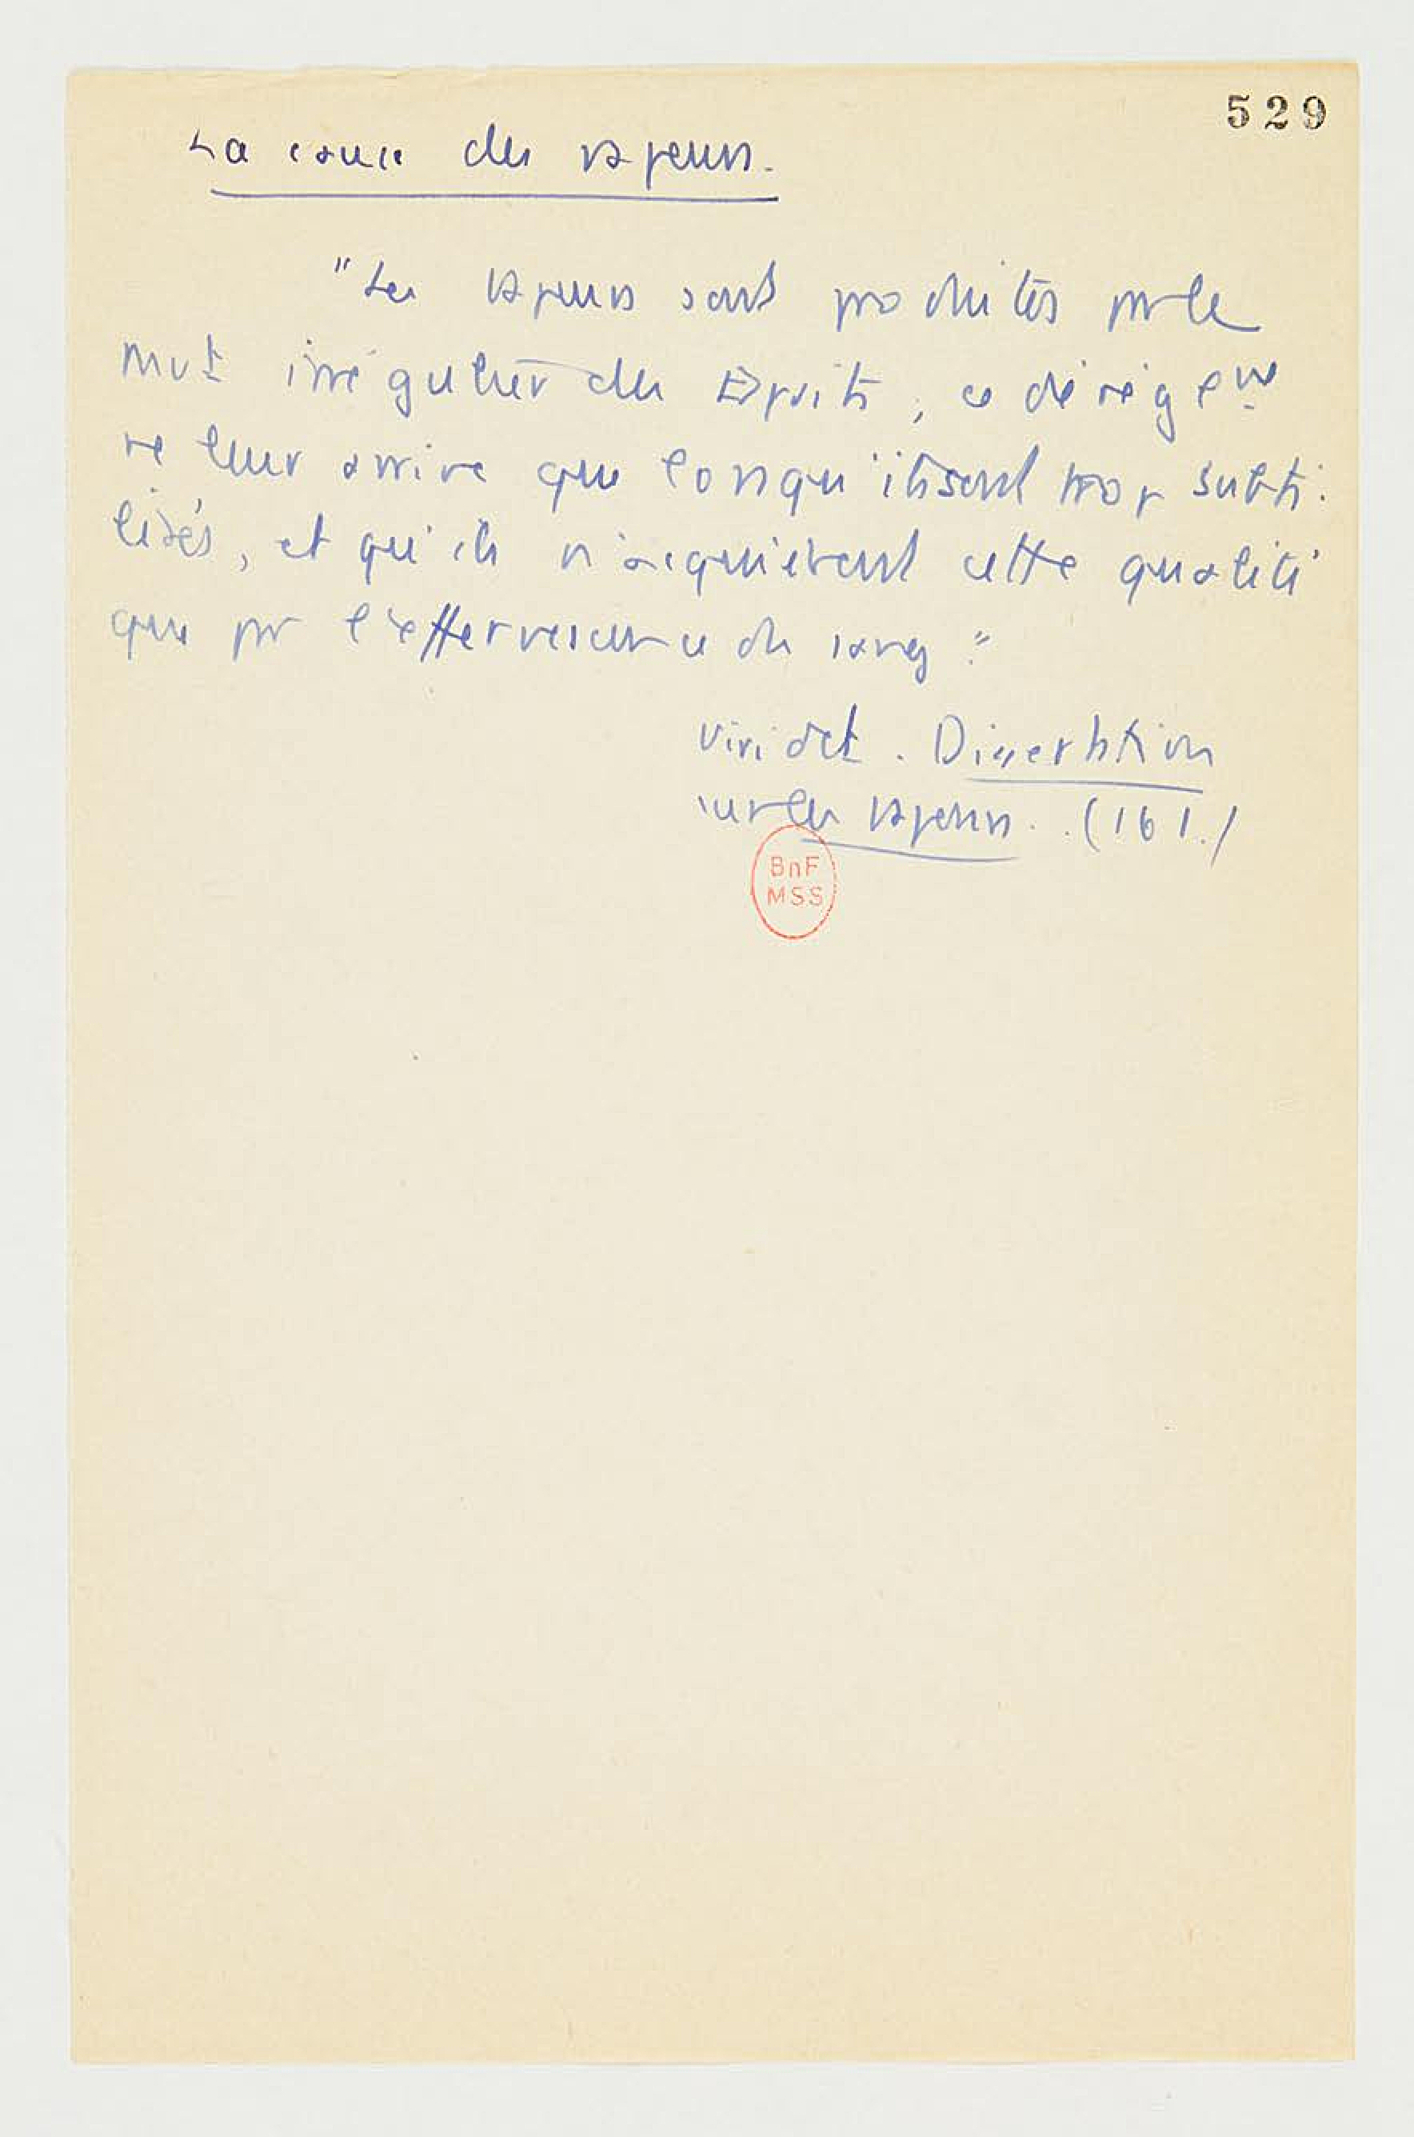 529
La cause des vapeurs.
"Les vapeurs sont produites par le
mvt irrégulier des Esprits, ce dérègemt
ne leur arrive que lorsqu'ils sont trop subti-
lisés, et qu'ils n'acquièrent cette qualité
que par l'effervescence du sang."
Viridet. Dissertation
sur les vapeurs. (161.)
BnF
MSS